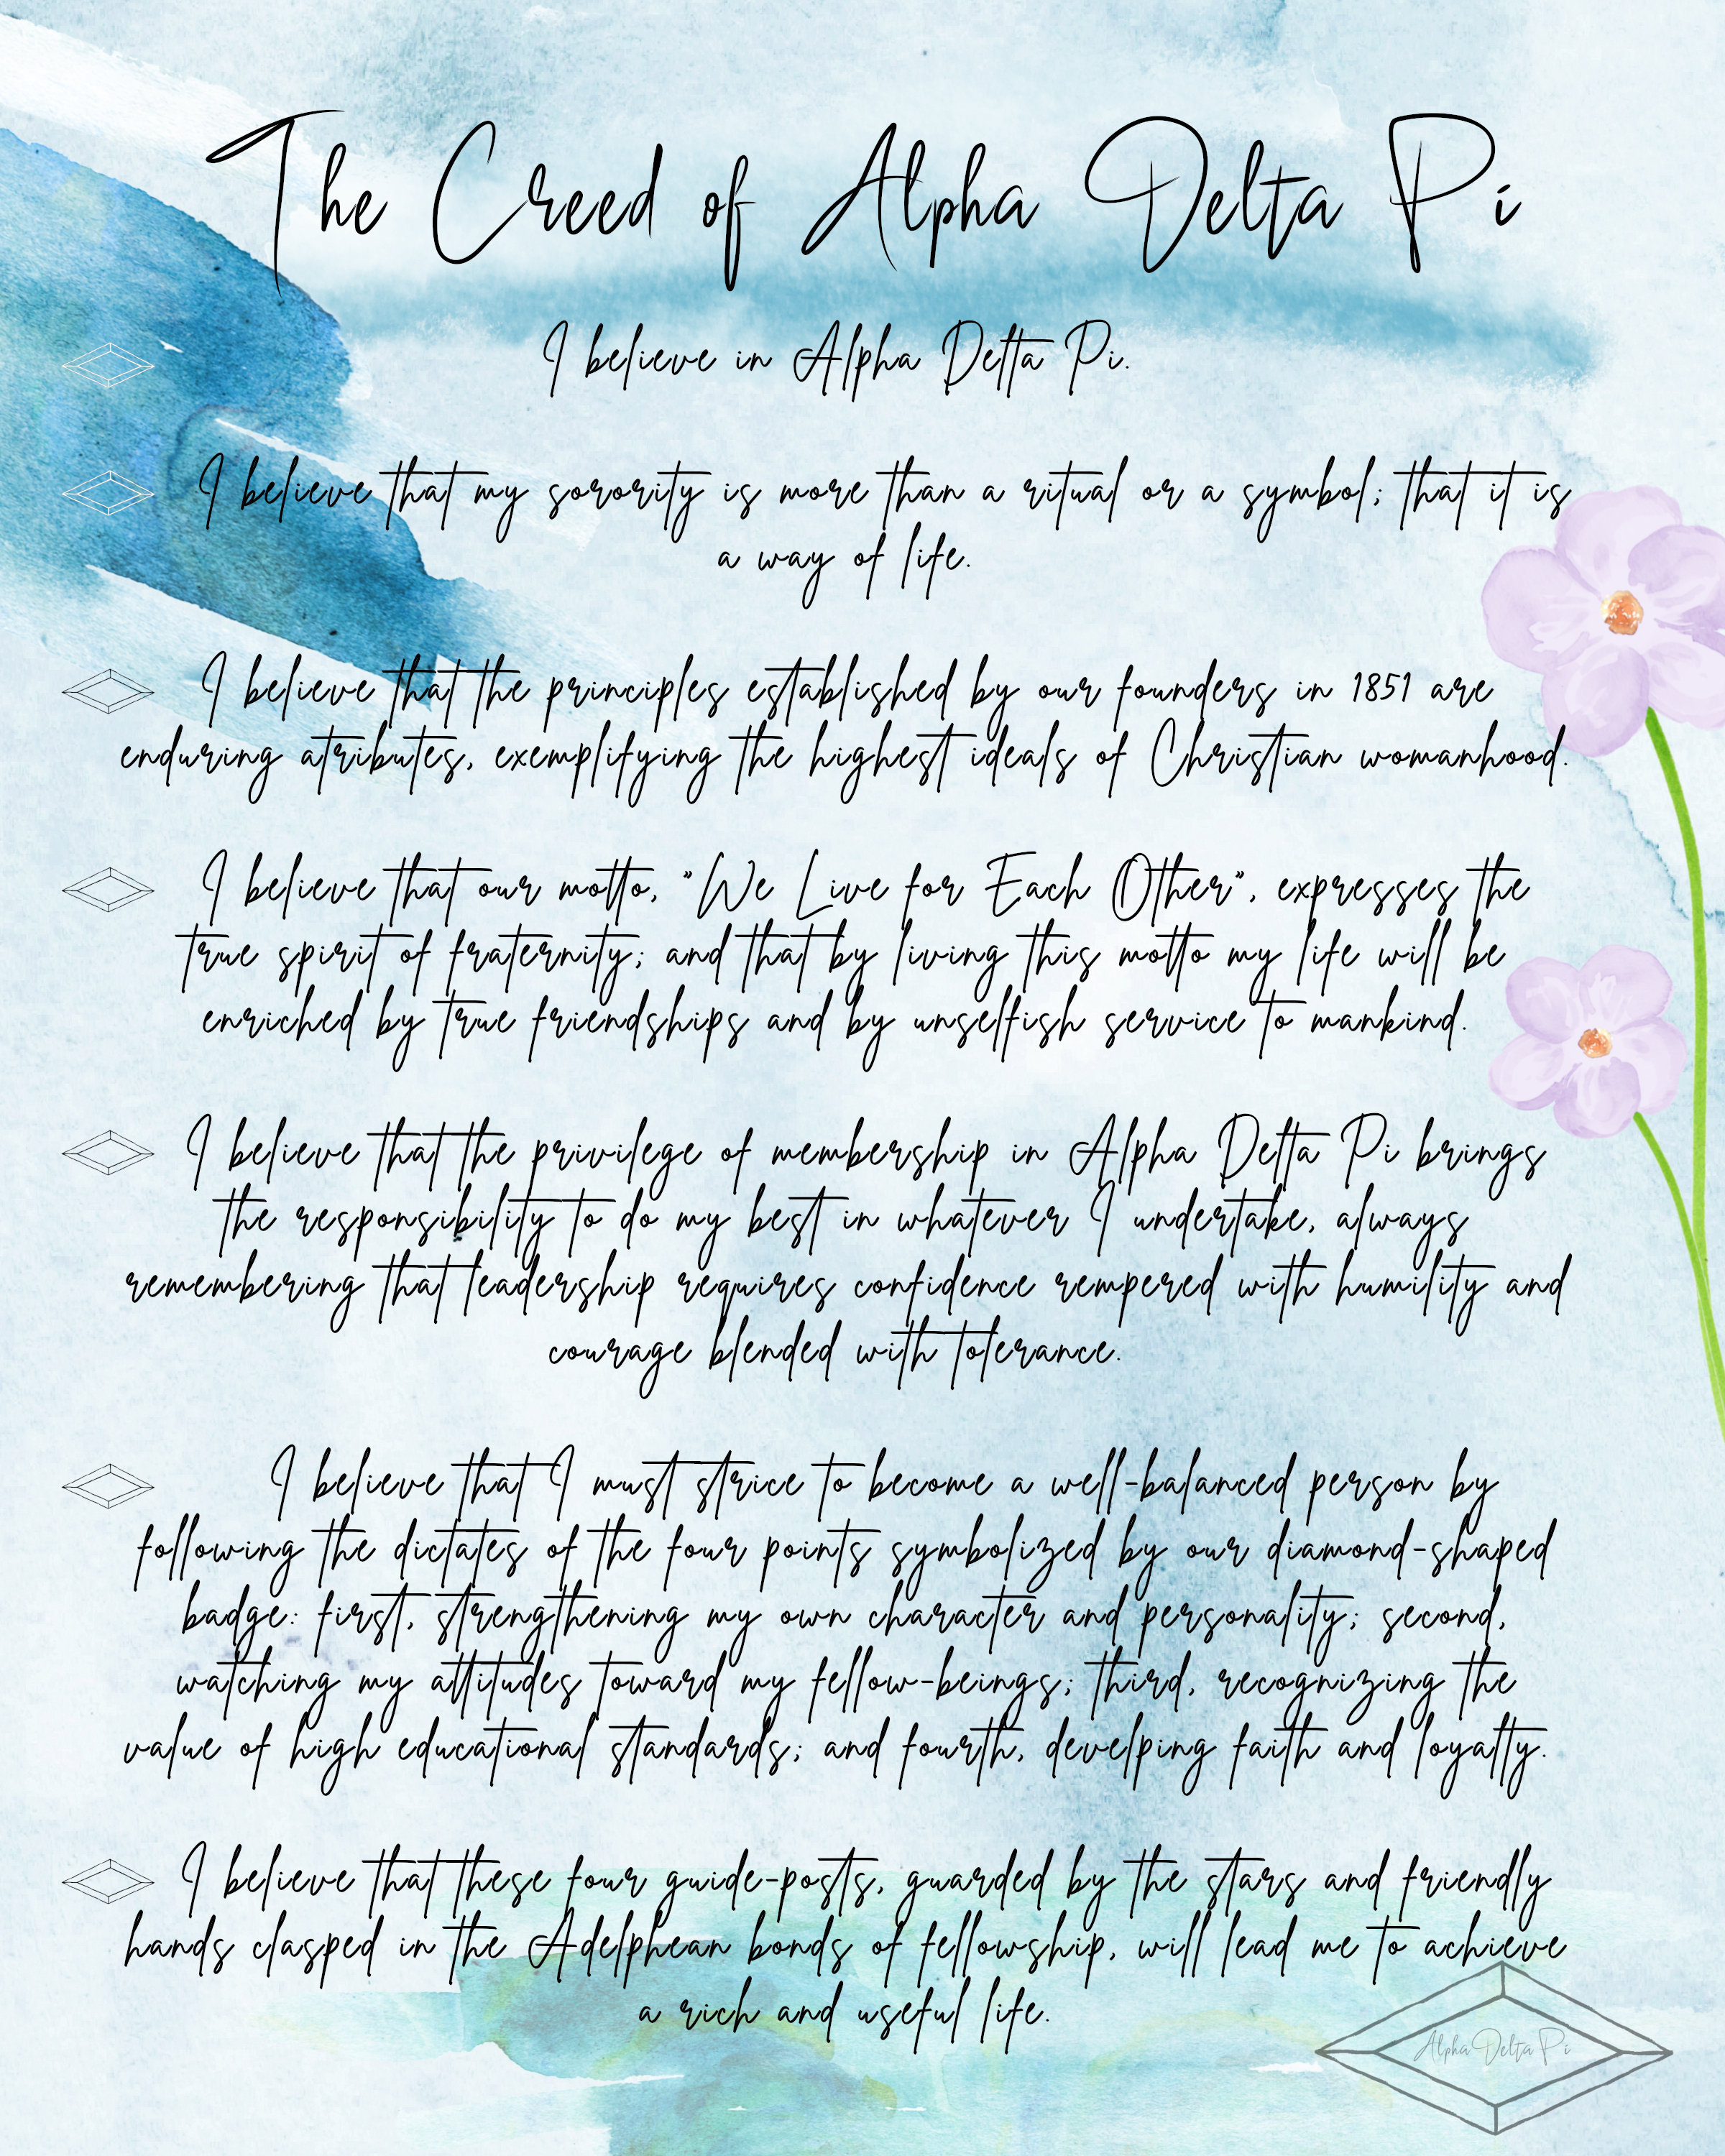 The Creed of Alpha Delta Pi
I believe in Alpha Delta Pi.
I believe that my sorority is more than a ritual or a symbol; that it is
a way of life.
I believe that the principles established by our founders in 1851 are
enduring atributes, exemplifying the highest ideals of Christian womanhood.
I believe that our motto, "We Live for Each Other", expresses the
true spirit of fraternity; and that by living this motto my life will be
enriched by true friendships and by unselfish service to mankind.
I believe that the privilege of membership in Alpha Delta Pi brings
the responsibility to do my best in whatever I undertake, always
remembering that leadership requires confidence rempered with humility and
courage blended with tolerance.
I believe that I must strice to become a well-balanced person by
following the dictates of the four points symbolized by our diamond-shaped
badge: first, strengthening my own character and personality; second,
watching my attitudes toward my fellow-beings; third, recognizing the
value of high educational standards; and fourth, develping faith and loyalty.
I believe that these four guide-posts, guarded by the stars and friendly
hands clasped in the Adelphean bonds of fellowship, will lead me to achieve
a rich and useful life.
Alpha Delta Pi